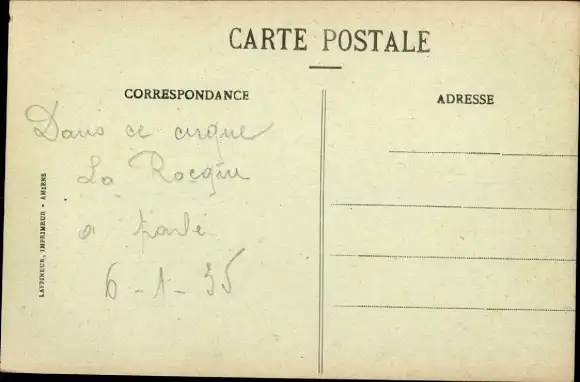 CARTE POSTALE
CORRESPONDANCE
ADRESSE
Dans ce cirque
La Rocque
a parlé
6-1-35
LAFFINEUR, IMPRIMEUR - AMIENS